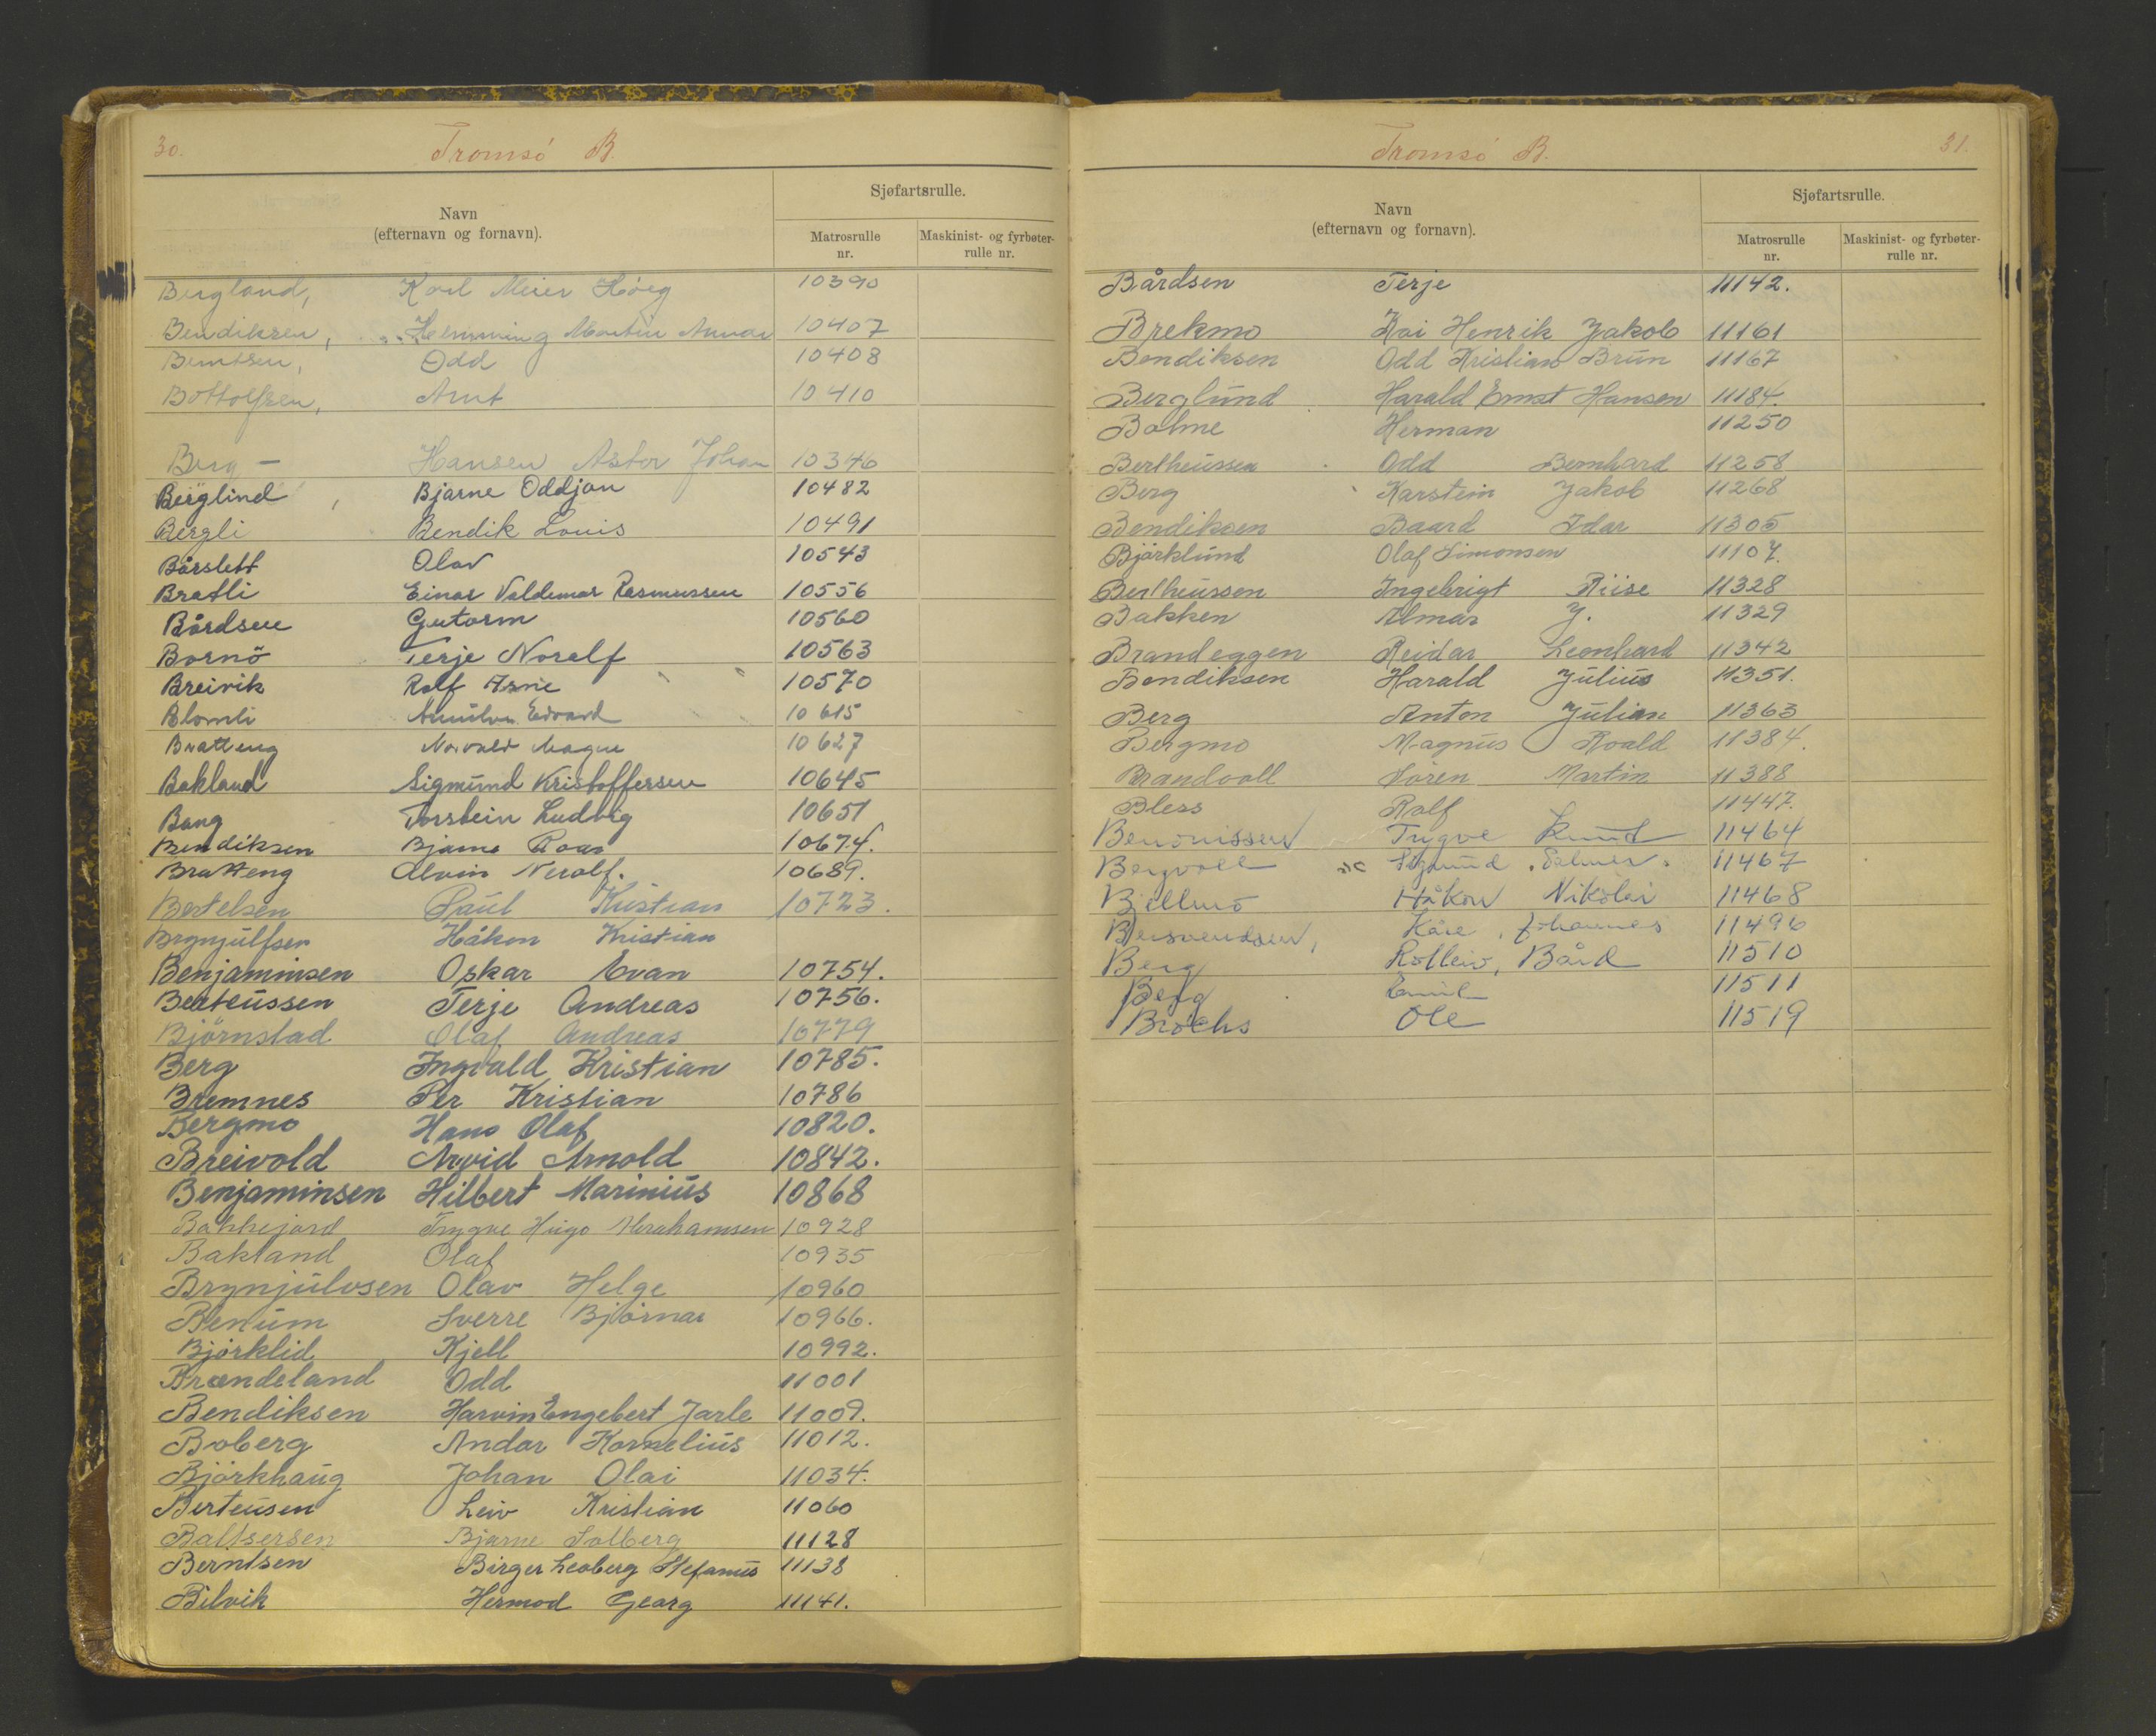 30.
Tromsö B.
Navn
(efternavn og fornavn).
Sjøfartsrulle.
Matrosrulle
nr.
Maskinist- og fyrbøter-
rulle nr.
Bergland, Karl Meier Höeg 10390
Bendiksen, Hemming Martin Annar 10407
Berntsen, Odd 10408
Bottolfsen, Arnt 10410
Berg – Hansen Astor Johan 10346
Berglind, Bjarne Oddjan 10482
Bergli Bendik Louis 10491
Bårslett Olav 10543
Bratli Einar Valdemar Rasmussen 10556
Bårdsen Gutorm 10560
Bornö Terje Noralf 10563
Breivik Rolf Arne 10570
Blomli Edvard 10615
Bratteng Norvald Magne 10627
Bakland Sigmund Kristoffersen 10645
Bang Torstein Ludvig 10651
Bendiksen Bjarne Roar 10674.
Bratteng Alvin Neralf. 10689.
Bertelsen Paul Kristian 10723.
Brynjulfsen Håkon Kristian
Benjaminsen Oskar Evan 10754.
Berteussen Terje Andreas 10756.
Björnstad Olaf Andreas 10779
Berg Ingvald Kristian 10785.
Bremnes Per Kristian 10786
Bergmo Hans Olaf 10820.
Breivold Arvid Arnold 10842.
Benjaminsen Hilbert Marinius 10868
Bakkejord Trygve Hugo Abrahamsen 10928
Bakland Olaf 10935
Brynjulvsen Olav Helge 10960
Benum Sverre Björnar 10966.
Björklid Kjell 10992.
Brændeland Odd 11001
Bendiksen Harvin Engebert Jarle 11009.
Boberg Andor Kornelius 11012.
Björkhaug Johan Olai 11034.
Berteusen Leiv Kristian 11060
Baltsersen Bjarne Solberg 11128
Berntsen Birger Leoberg Stefanus 11138
Bilvik Hermod Georg 11141.
31.
Tromsö B.
Navn
(efternavn og fornavn).
Sjøfartsrulle.
Matrosrulle
nr.
Maskinist- og fyrbøter-
rulle nr.
Bårdsen Terje 11142.
Brekmo Kai Henrik Jakob 11161
Bendiksen Odd Kristian Brun 11167
Berglund Harald Ernst Hansen 11184.
Bolme Herman 11250
Bertheussen Odd Bernhard 11258
Berg Karstein Jakob 11268
Bendiksen Baard Idar 11305
Bjørklund Olaf Simonsen 11107.
Bertheussen Ingebrigt Riise 11328
Bakken Almar J. 11329
Brandeggen Reidar Leonhard 11342
Bendiksen Harald Julius 11351.
Berg Anton Julian 11363
Bergmo Magnus Roald 11384.
Brandvoll Sören Martin 11388
Bless Rolf 11447.
Benonissen Trygve Knud 11464
Bergvoll Sigmund Selmer 11467
Bjellmo Håkon Nikolai 11468
Kåre Johannes 11496
Berg Rolleiv, Bård 11510
Berg Emil 11511
Brochs Ole 11519